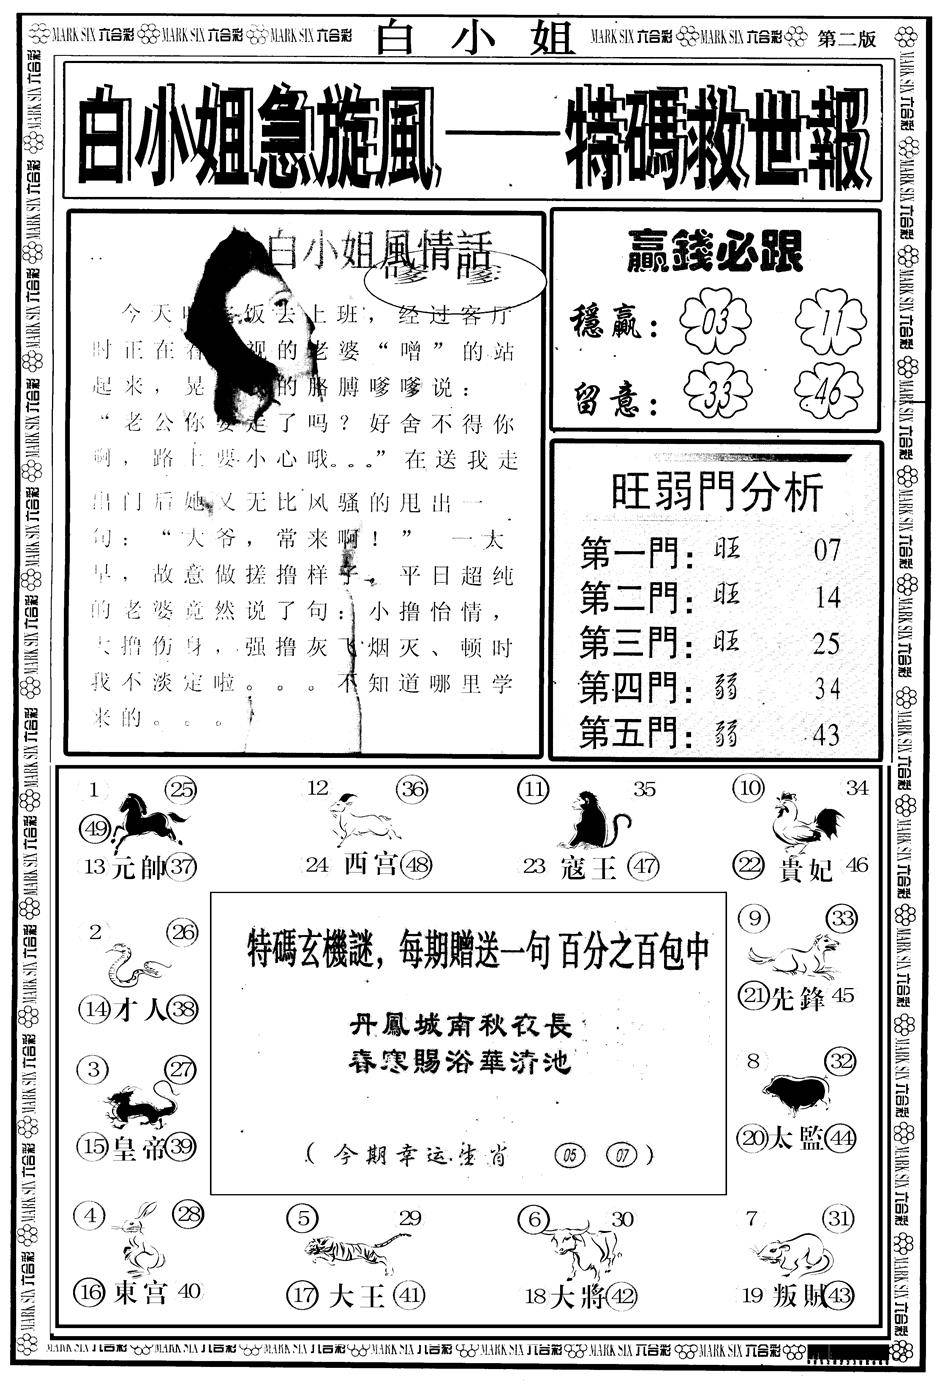 MARK SIX 六合彩 MARK SIX 六合彩 MARK SIX 六合彩 白小姐 MARK SIX 六合彩 MARK SIX 六合彩 第二版
白小姐急旋風——特碼救世報
白小姐風情話
今天 饭去上班，经过客厅
时正在看 视的老婆“噌”的站
起来，晃 的胳膊嗲嗲说：
“老公你要走了吗？好舍不得你
啊，路上要小心哦。。。”在送我走
出门后她又无比风骚的甩出一
句：“大爷，常来啊！” 一大
早，故意做搓撸样子。平日超纯
的老婆竟然说了句：小撸怡情，
大撸伤身，强撸灰飞烟灭、顿时
我不淡定啦。。。不知道哪里学
来的。。。
贏錢必跟
穩贏： 03 11
留意： 33 46
旺弱門分析
第一門：旺 07
第二門：旺 14
第三門：旺 25
第四門：弱 34
第五門：弱 43
1 25 12 36 11 35 10 34
49
13 元帥 37 24 西宫 48 23 寇王 47 22 貴妃 46
特碼玄機謎，每期贈送一句 百分之百包中
丹鳳城南秋夜長
春寒賜浴華清池
（今期幸运生肖 05 07）
2 26
14 才人 38
3 27
15 皇帝 39
9 33
21 先鋒 45
8 32
20 太監 44
4 28 5 29 6 30 7 31
16 東宫 40 17 大王 41 18 大將 42 19 叛賊 43
MARK SIX 六合彩 MARK SIX 六合彩 MARK SIX 六合彩 MARK SIX 六合彩 MARK SIX 六合彩 MARK SIX 六合彩 MARK SIX 六合彩